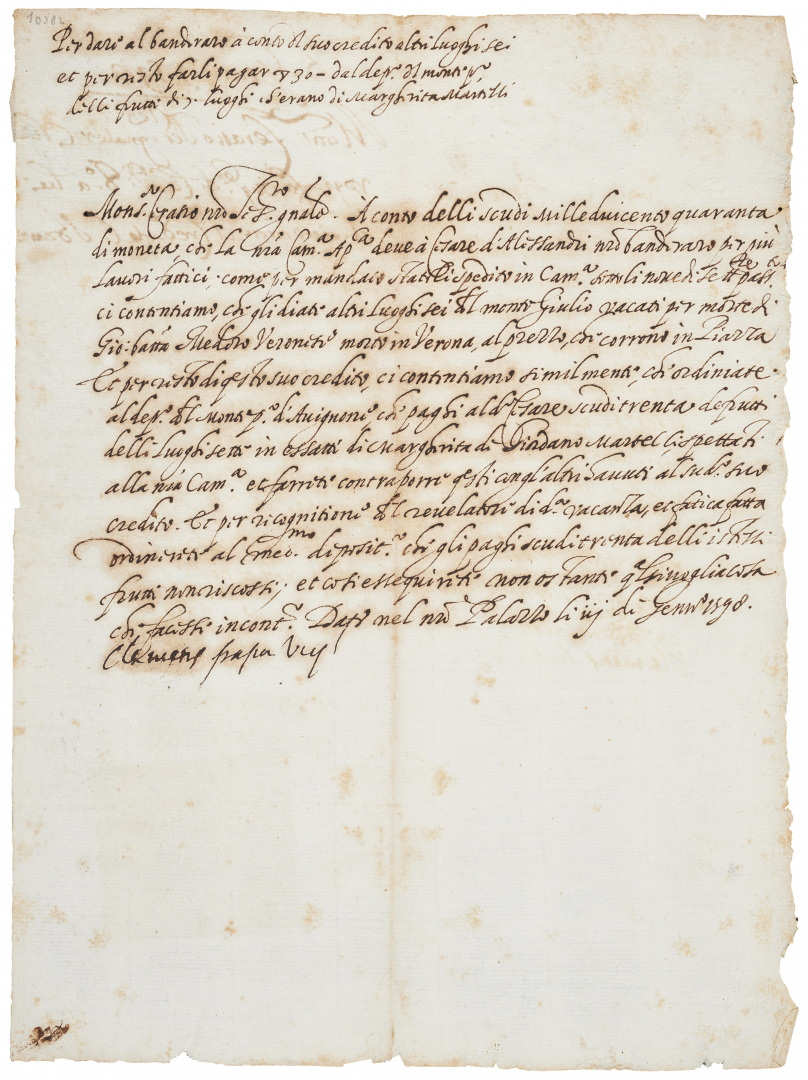 10282
Per dare al bandiraro à conto del suo credito altri luoghi sei
et per resto farli pagar ▽ 30 – dal dep.º del monte p.º
delli frutti di 7 luoghi ch'erano di Margherita Martelli
Mons.r Eratio nro Thes.ro g'nale. À conto delli scudi Milleduicento quaranta
di moneta, che la nrã Cam.a Ap.ca deve à Cesare d'Alessandri nrõ bandiraro per più
lavori fattici, come per mandato spedito in Cam.a sotto li nove di Xbre pass.to
ci contentiamo, che gli diate altri luoghi sei del monte Giulio vacati per morte di
Gio: batta Medoro Veronese morto in Verona, al prezzo, che corrono in Piazza
Et per resto di q'sto suo credito, ci contentiamo similmente, che ordiniate
al dep.º del Monte p.º d'Avignone che paghi al d.º Cesare scudi trenta de frutti
delli luoghi sette in essatti di Margherita di Giordano Martelli, spettati
alla nrã Cam.a et farrete contraporre q'sti con gl'altri havuti al sud.º suo
credito. Et per recognitione del revelatore di d.a vacanza, et fatica fatta
ordinerete al med.mo deposit.º che gli paghi scudi trenta delli istessi
frutti non riscossi; et così essequirete non ostante q'lsivoglia cosa
che facesse in cont.º Dat' nel nrõ Palazzo li iij di Genn.º 1598.
Clemens papa Viij